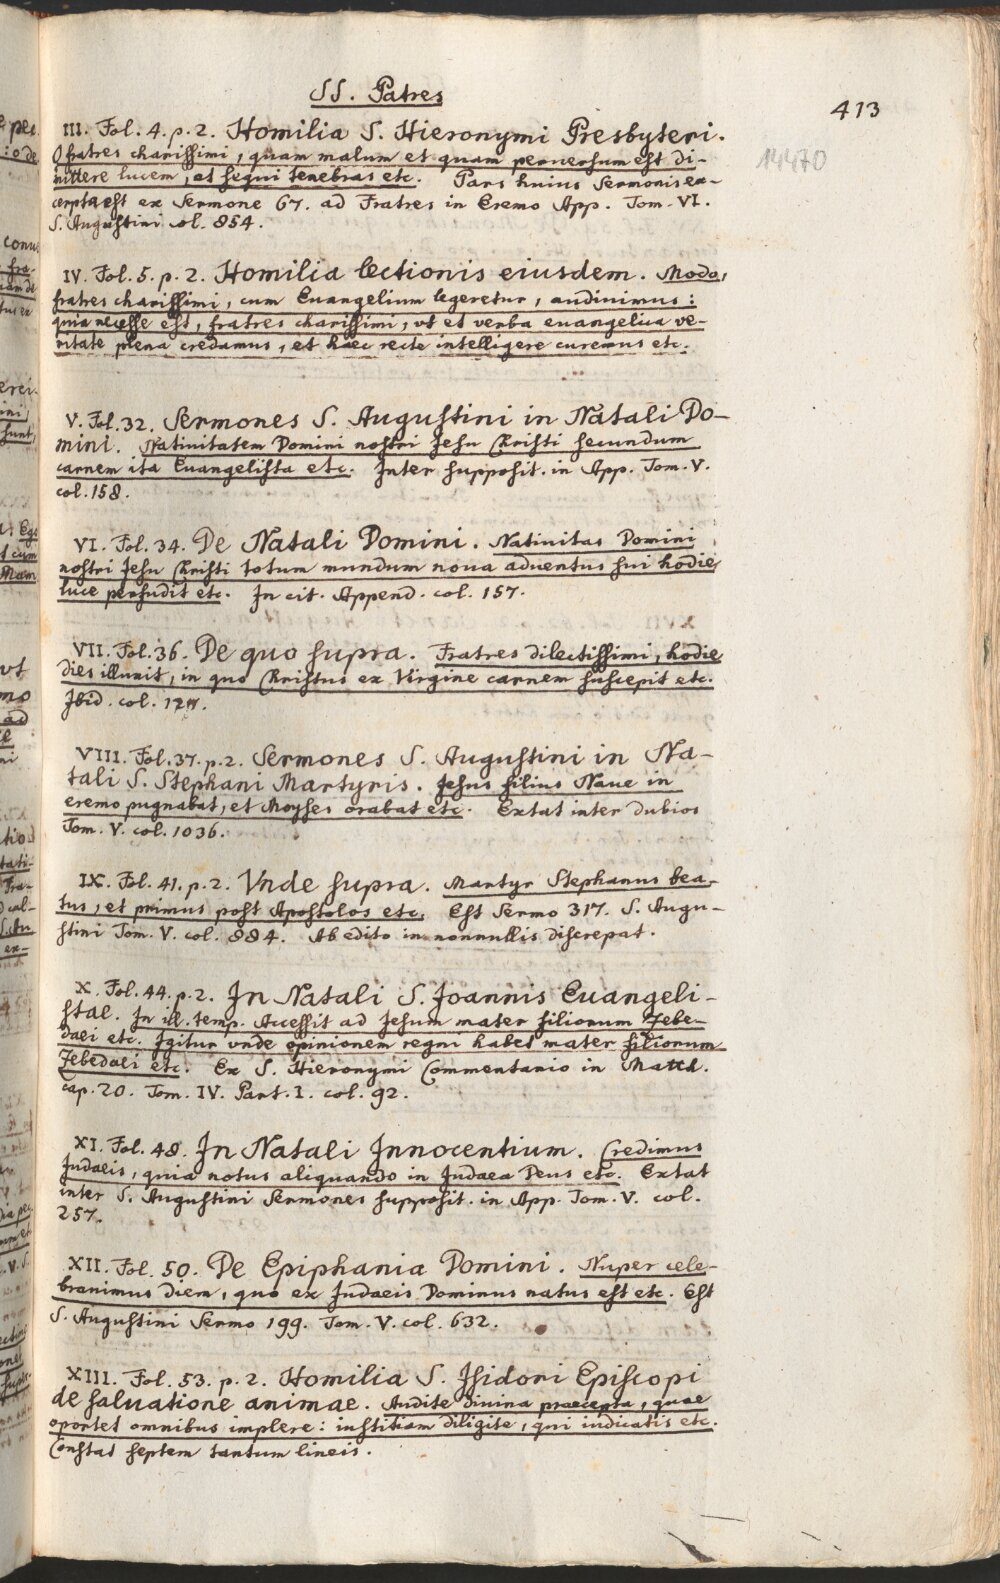 SS. Patres
413
14470
III. Fol. 4. p. 2. Homilia S. Hieronymi Presbyteri.
O fratres charissimi, quam malum et quam peruersum est di-
mittere lucem, et sequi tenebras etc. Pars huius Sermonis ex-
cerpta est ex Sermone 67. ad Fratres in Eremo App. Tom. VI.
S. Augustini col. 854.
IV. Fol. 5. p. 2. Homilia lectionis eiusdem. Modo,
fratres charissimi, cum Euangelium legeretur, audiuimus:
quia necesse est, fratres charissimi, vt et verba euangelica ve-
ritate plena credamus, et haec recte intelligere curemus etc.
V. Fol. 32. Sermones S. Augustini in Natali Do-
mini. Natiuitatem Domini nostri Jesu Christi secundum
carnem ita Euangelista etc. Inter supposit. in App. Tom. V.
col. 158.
VI. Fol. 34. De Natali Domini. Natiuitas Domini
nostri Jesu Christi totum mundum noua aduentus sui hodie
luce perfudit etc. In cit. Append. col. 157.
VII. Fol. 36. De quo supra. Fratres dilectissimi, hodie
dies illuxit, in quo Christus ex Virgine carnem suscepit etc.
Ibid. col.
VIII. Fol. 37. p. 2. Sermones S. Augustini in Na-
tali S. Stephani Martyris. Jesus filius Naue in
eremo pugnabat, et Moyses orabat etc. Extat inter dubios
Tom. V. col. 1036.
IX. Fol. 41. p. 2. Vnde supra. Martyr Stephanus bea-
tus, et primus post Apostolos etc. Est Sermo 317. S. Augu-
stini Tom. V. col. 884. Ab edito in nonnullis discrepat.
X. Fol. 44. p. 2. In Natali S. Joannis Euangeli-
stae. In ill. temp. Accessit ad Jesum mater filiorum Zebe-
daei etc. Igitur vnde opinionem regni habet mater filiorum
Zebedaei etc. Ex S. Hieronymi Commentario in Matth.
cap. 20. Tom. IV. Part. I. col. 92.
XI. Fol. 48. In Natali Innocentium. Credimus
Judaeis, quia notus aliquando in Judaea Deus etc. Extat
inter S. Augustini Sermones supposit. in App. Tom. V. col.
257.
XII. Fol. 50. De Epiphania Domini. Nuper cele-
brauimus diem, quo ex Judaeis Dominus natus est etc. Est
S. Augustini Sermo 199. Tom. V. col. 632.
XIII. Fol. 53. p. 2. Homilia S. Isidori Episcopi
de saluatione animae. Audite diuina praecepta, quae
oportet omnibus implere: iustitiam diligite, qui iudicatis etc.
Constat septem tantum lineis.